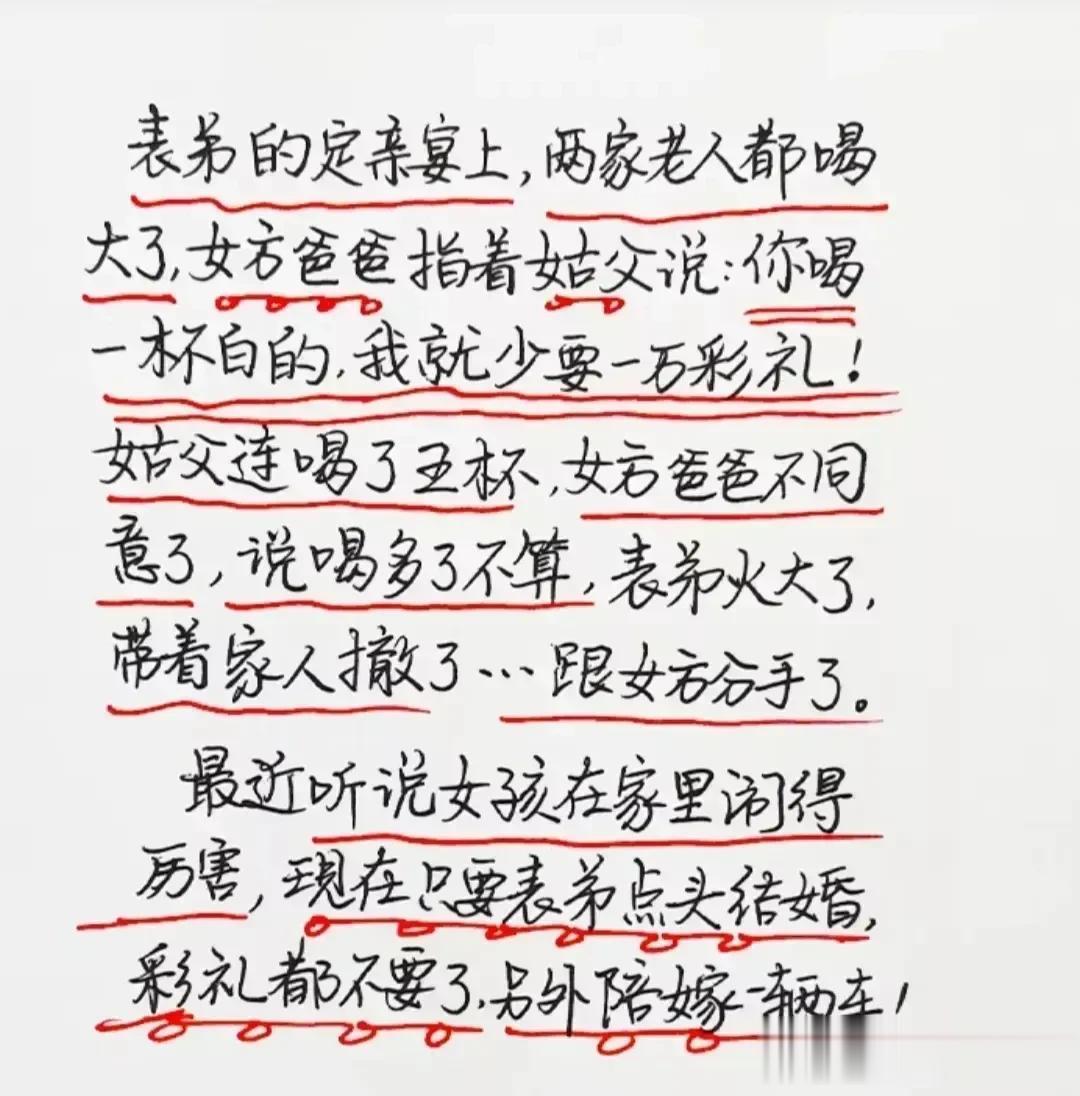 表弟的定亲宴上,两家老人都喝
大了,女方爸爸指着姑父说:你喝
一杯白的,我就少要一万彩礼!
姑父连喝了五杯,女方爸爸不同
意了,说喝多了不算,表弟火大了,
带着家人撤了…跟女方分手了。
最近听说女孩在家里闹得
厉害,现在只要表弟点头结婚,
彩礼都不要了,另外陪嫁一辆车!